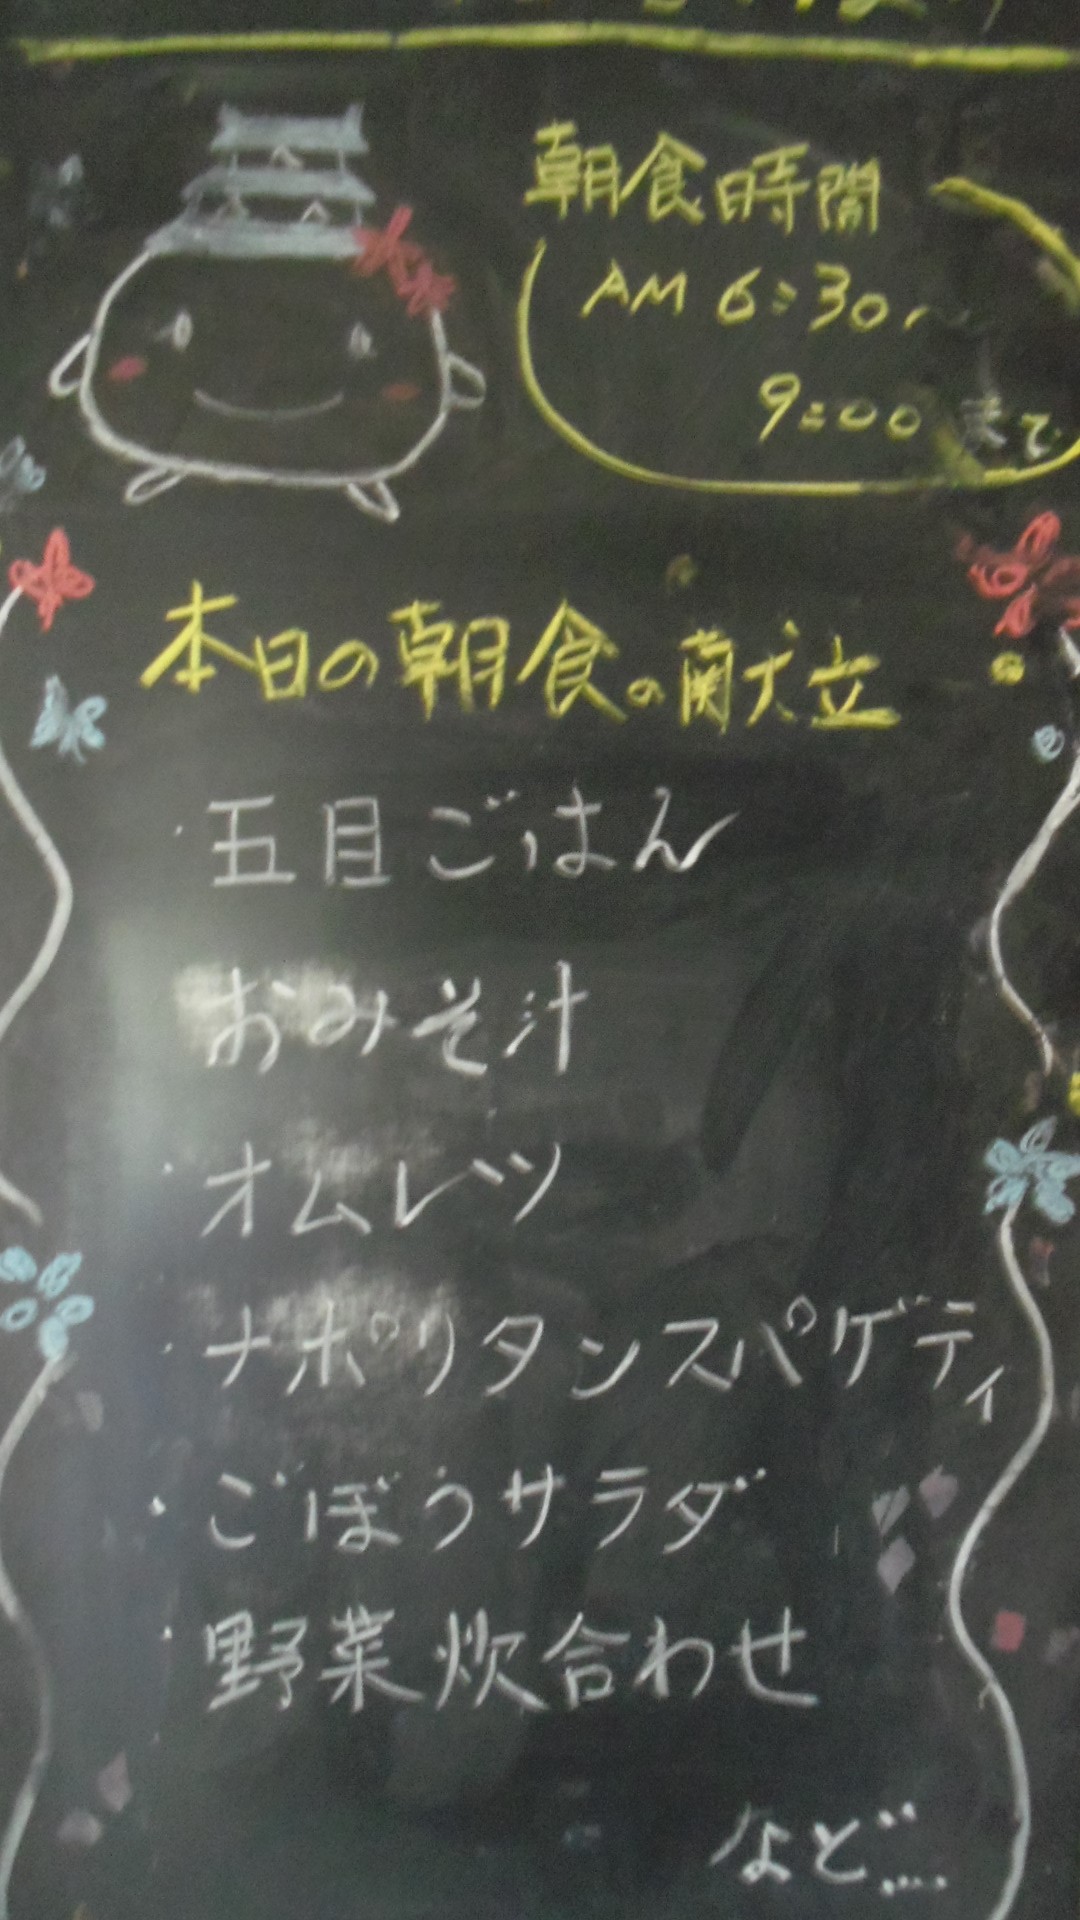 朝食時間
AM 6:30〜
9:00まで
本日の朝食の献立
・五目ごはん
おみそ汁
・オムレツ
・ナポリタンスパゲティ
・ごぼうサラダ
・野菜炊合わせ
など….